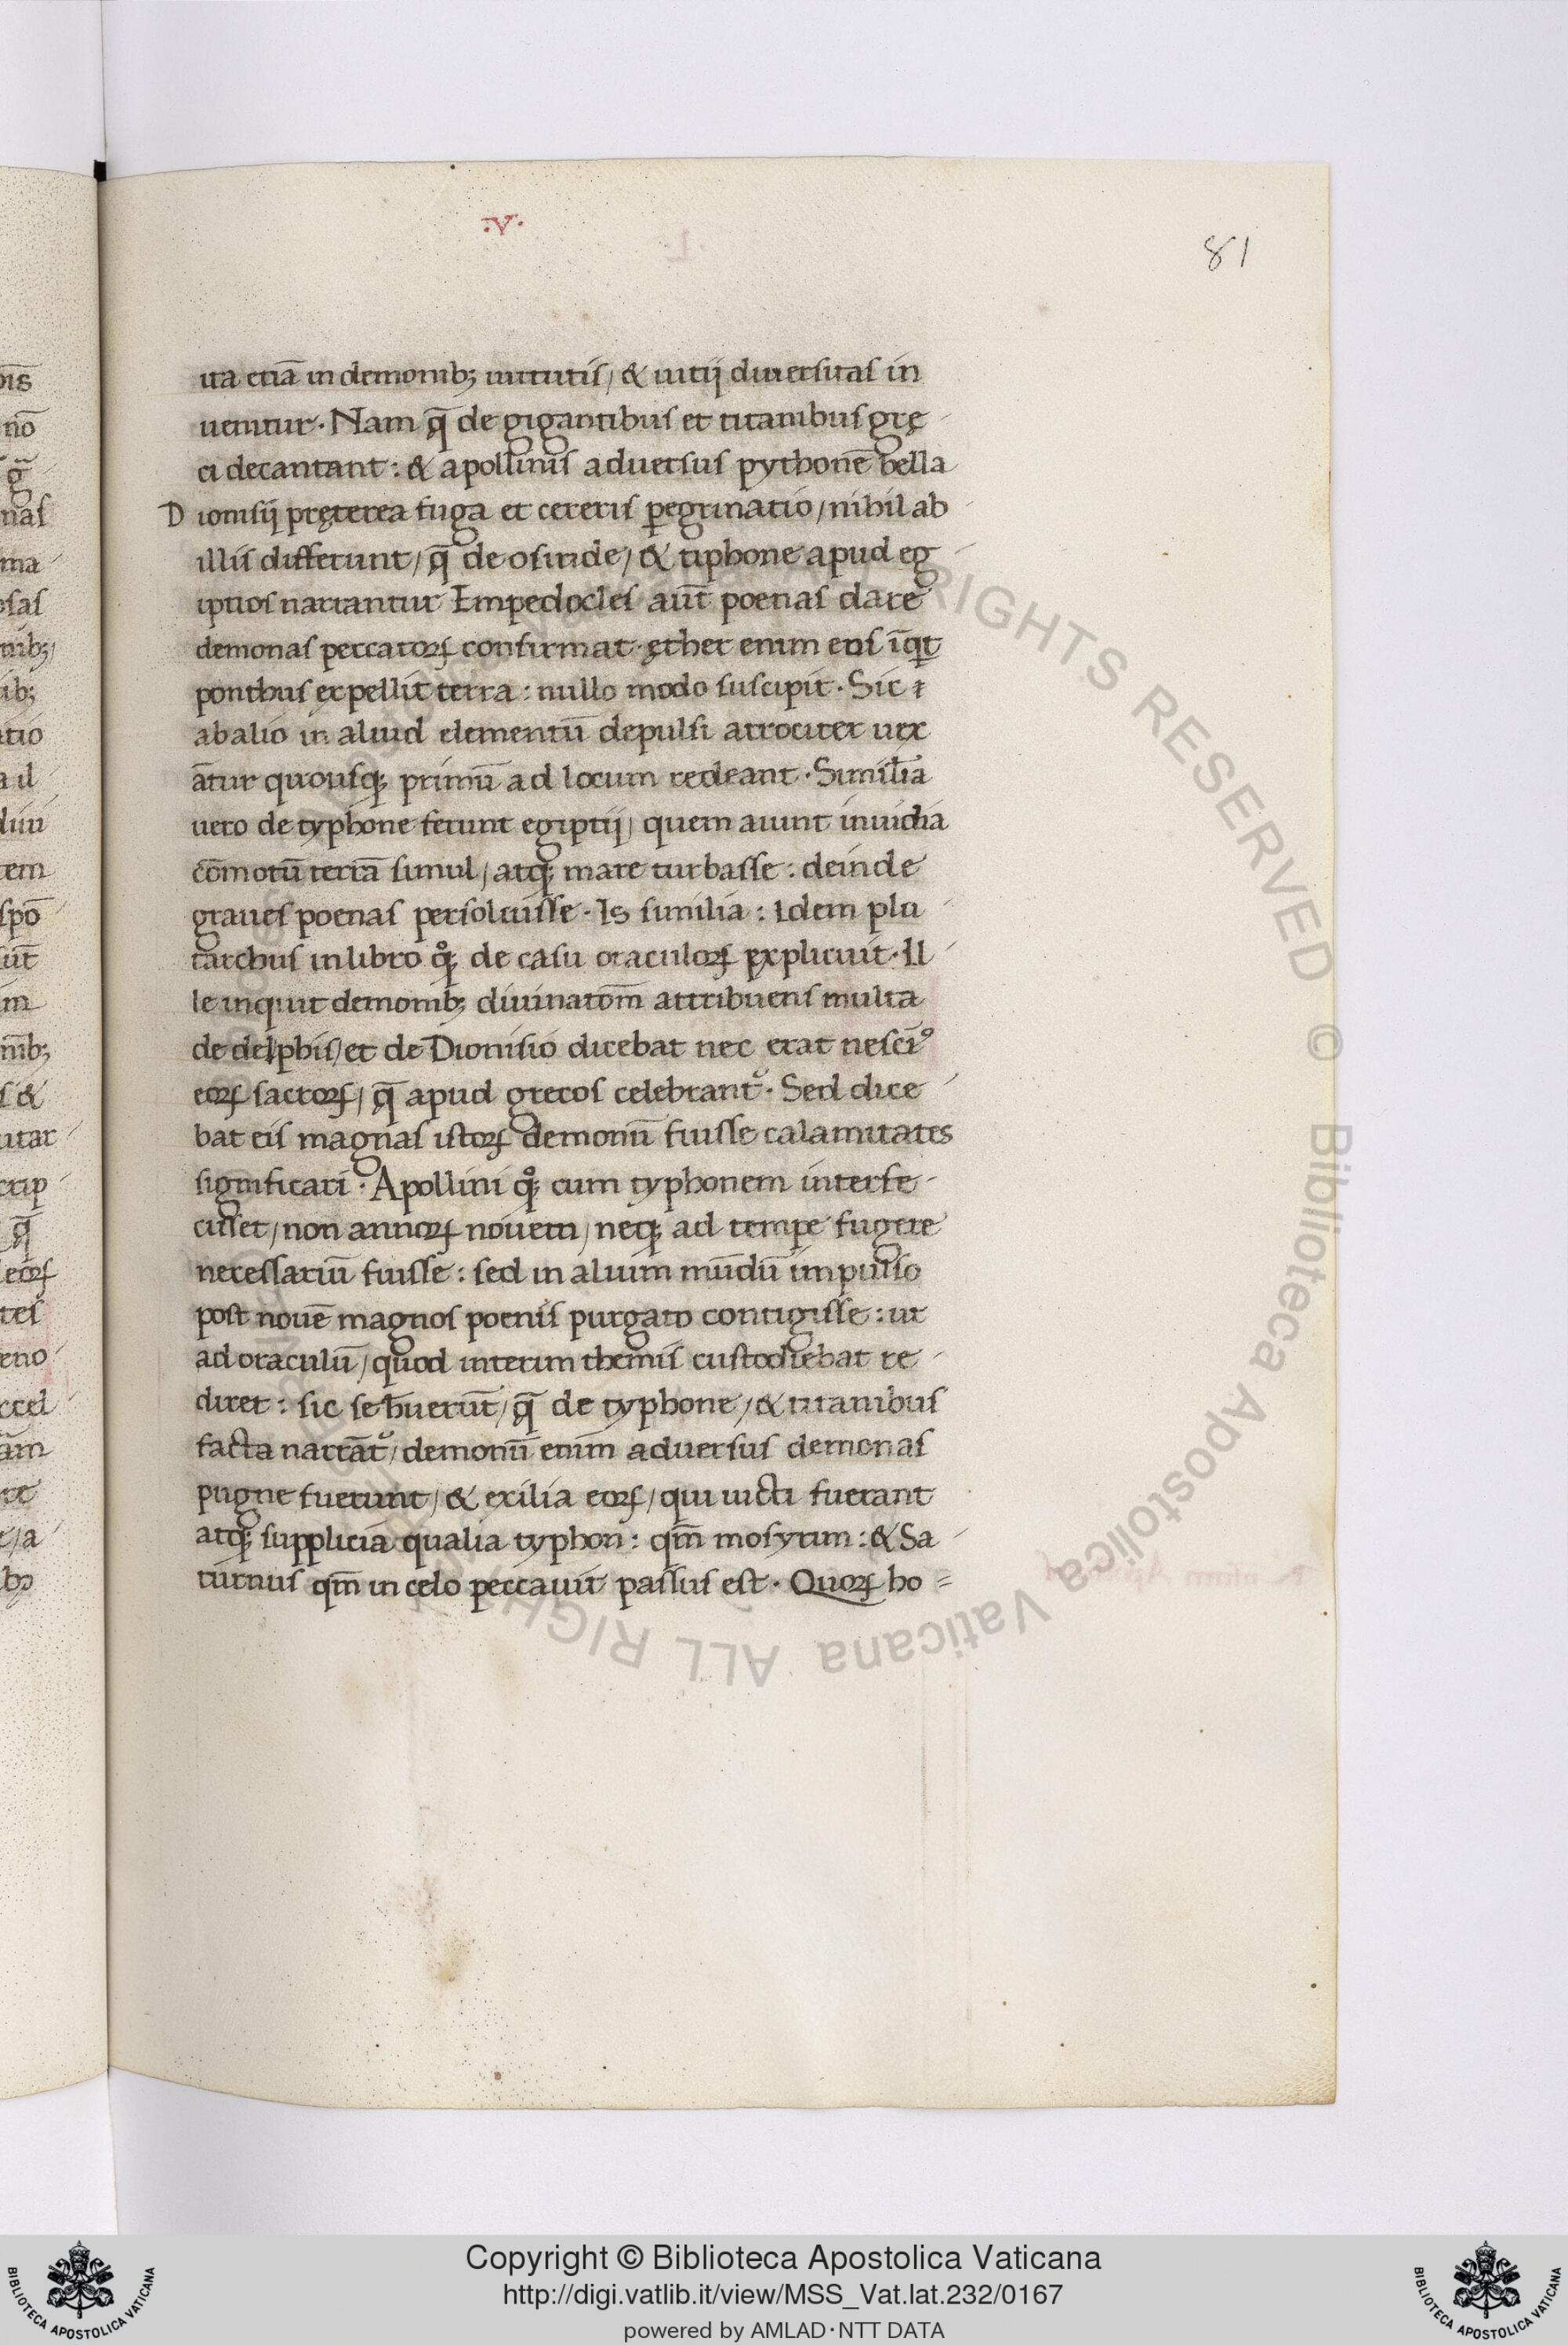 .v.
81
ita etiā in demonib; uirtutis / & uitij diuersitas in
uenitur · Nam q̄ de gigantibus et titanibus grę
ci decantant : & apollinis aduersus pythonē bella
Dionisij pręterea fuga et cereris ꝑegrinatio / nihil ab
illis differunt / q̄ de osiride / & tiphone apud eg
iptios narrantur Empedocles aūt poenas dare
demonas peccatoꝝ confirmat · ęther enim eos īqt
pontus expellit terra : nullo modo suscipit · Sic
ab alio in aliud elementū depulsi atrociter uex
āntur quousq; primū ad locum redeant · Similia
uero de typhone ferunt egiptij / quem aiunt inuidia
cōmotū terrā simul / atq; mare turbasse : deinde
graues poenas persoluisse · Is similia : Idem plu
tarchus in libro q̊; de casu oraculoꝝ explicuit · Il
le inquit demonib; diuinatōm attribuens multa
de delphis / et de Dionisio dicebat nec erat nesci᷒
eoꝝ sacroꝝ / q̄ apud grecos celebrant᷑ · Sed dice
bat eis magnas istoꝝ demonū fuisse calamitates
significari · Apollini q̊; cum typhonem interfe
cisset / non annoꝝ nouem / neq; ad tempe fugere
necessariū fuisse : sed in alium mūdū impulso
post nouē magnos poenis purgato contigisse : ut
ad oraculū / quod interim themis custodiebat re
diret : sic se hūerūt / q̄ de typhone / & titanibus
facta narrāt᷑ / demonū enim aduersus demonas
pugne fuerunt / & exilia eoꝝ / qui uicti fuerant
atq; supplicia qualia typhon : qm̄ in osyrim : & Sa
turnus qm̄ in celo peccauit passus est · Quoꝝ ho
Copyright © Biblioteca Apostolica Vaticana
http://digi.vatlib.it/view/MSS_Vat.lat.232/0167
powered by AMLAD·NTT DATA